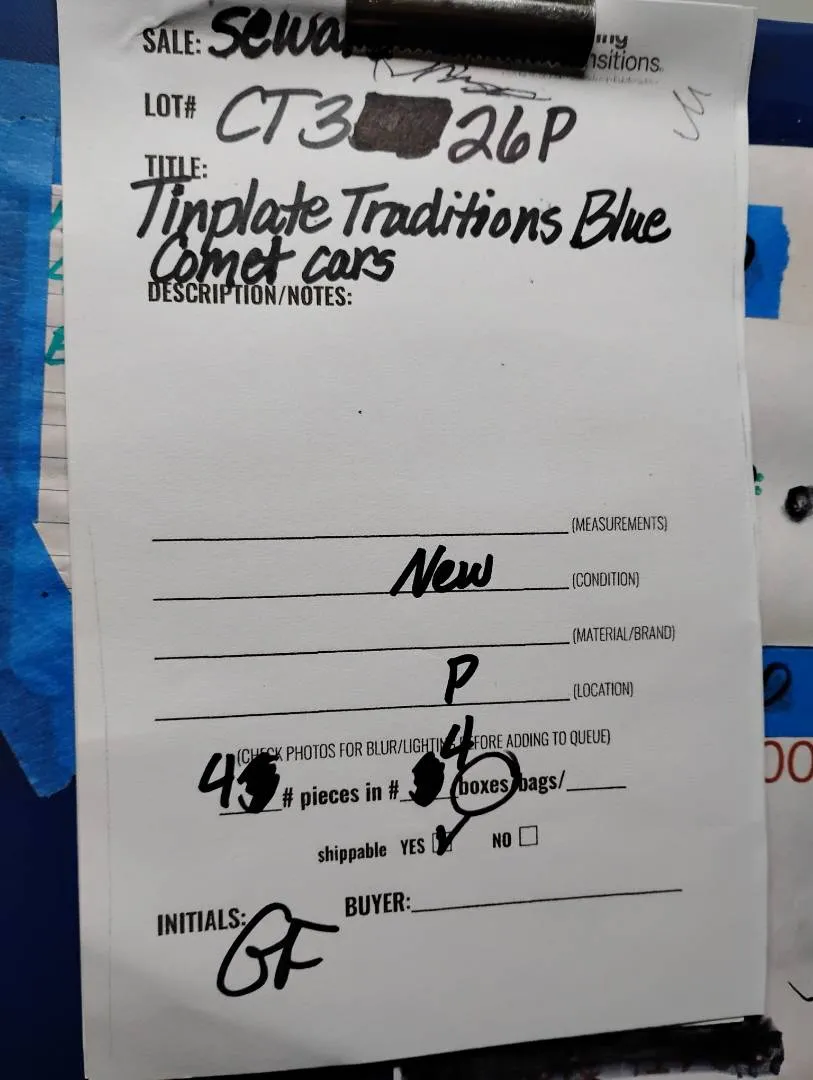 SALE: Sewa
nsitions.
LOT# CT3 26P
TITLE:
Tinplate Traditions Blue
Comet cars
DESCRIPTION/NOTES:
(MEASUREMENTS)
New (CONDITION)
(MATERIAL/BRAND)
P (LOCATION)
(CHECK PHOTOS FOR BLUR/LIGHTING BEFORE ADDING TO QUEUE)
4 # pieces in # 4 boxes/bags/
shippable YES NO
INITIALS: GF BUYER:
00